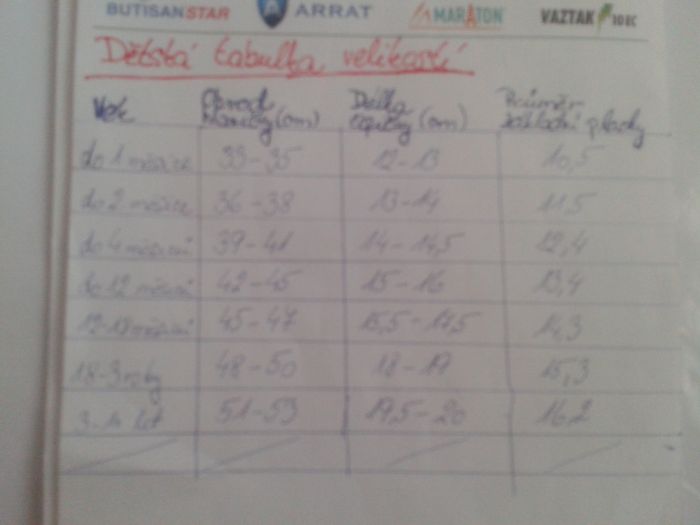 BUTISAN STAR ARRAT MARATON VAZTAK 10 EC
Dětská tabulka velikostí
Věk Obvod hlavičky (cm) Délka čepičky (cm) Průměr základní placky
do 1 měsíce 33-35 12-13 10,5
do 2 měsíce 36-38 13-14 11,5
do 4 měsíců 39-41 14-14,5 12,4
do 12 měsíců 42-45 15-16 13,4
12-18 měsíců 45-47 15,5-17,5 14,3
18-3 roky 48-50 18-19 15,3
3-10 let 51-53 19,5-20 16,2